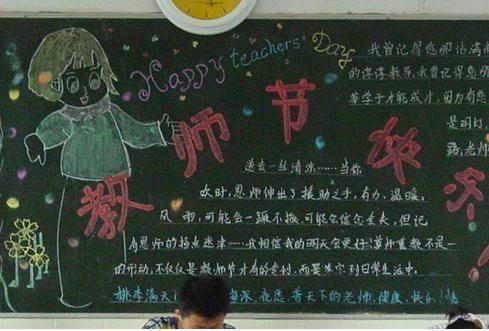 Happy teachers' Day
教师节快乐
我曾记得您那沾满
的谆谆教导,我曾记得您那
莘学子才能成才,因为有您
是明灯
路,老师
送去一丝清凉……当你
饮时,恩师伸出了援助之手,有力、温暖。
风雨,可能会一蹶不振,可能会信念丧失,但记
有恩师的指点迷津……我相信我的明天会更好!尊师重教不是一
的行动,不仅仅是教师节才有的专利,而是落实到日常生活中。
桃李满天 海深,祝愿,普天下的老师,健康,快乐